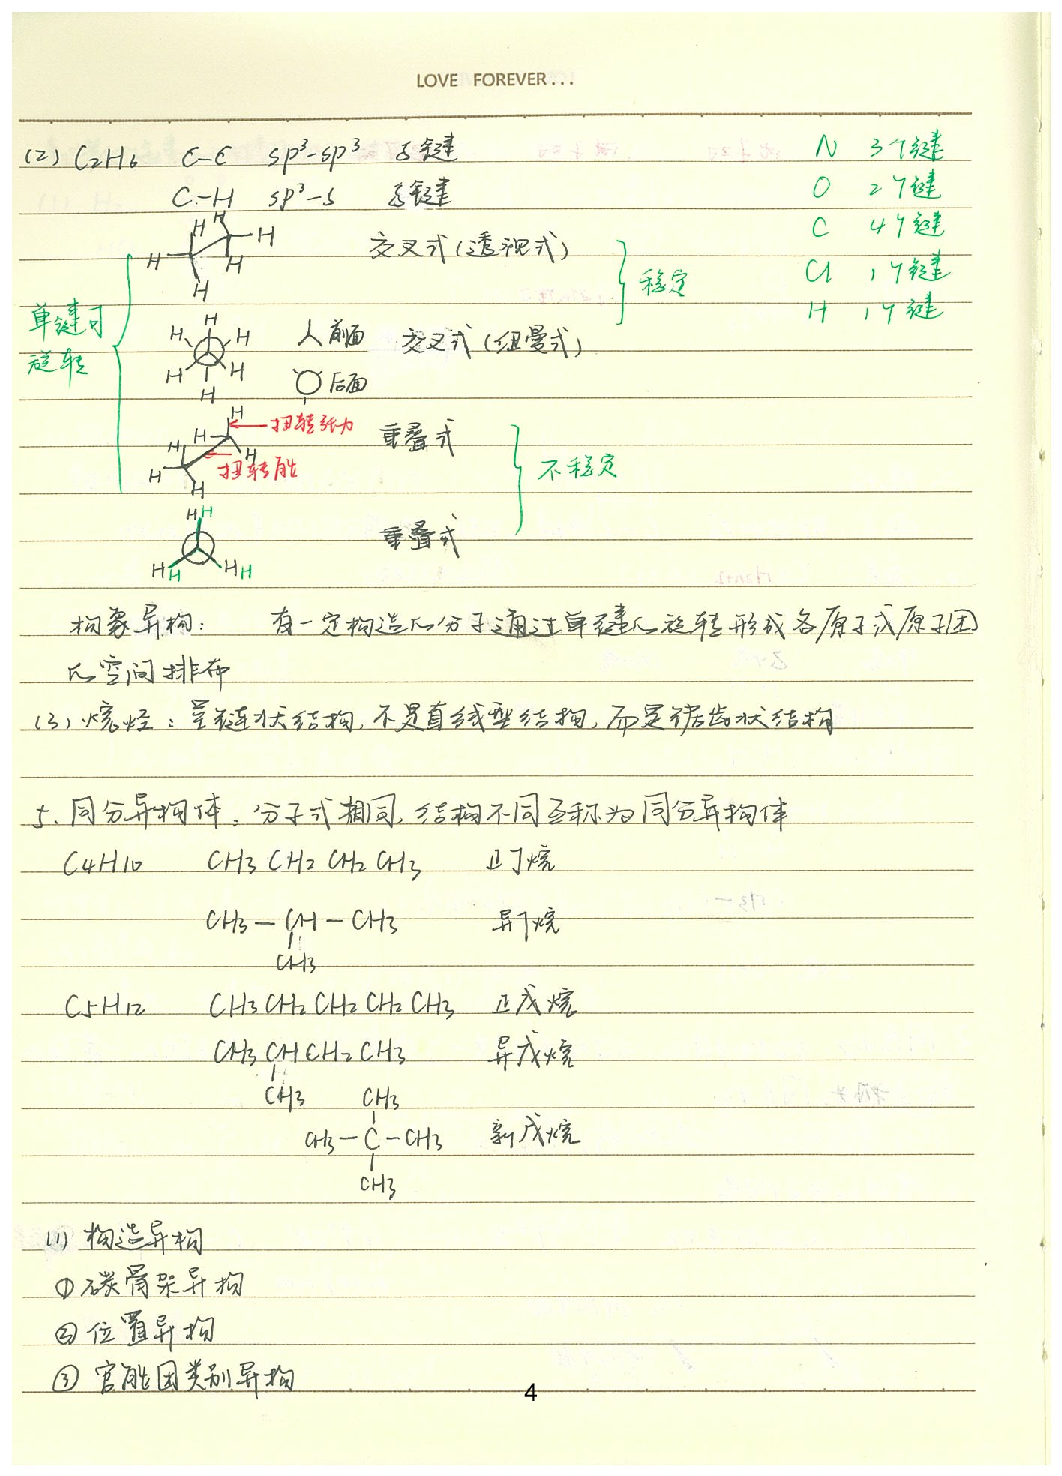 LOVE FOREVER...
(2) C2H6 C-C sp³-sp³ δ键 N 3个键
C-H sp³-s δ键 O 2个键
C 4个键
Cl 1个键
H 1个键
H H H H H H
交叉式(透视式)
稳定
单键可
旋转
H H H H H H
人前面 交叉式(纽曼式)
后面
H H H H H H
扭转张力 重叠式
扭转能
不稳定
HH
重叠式
HH HH
构象异构: 有一定构造的分子通过单键的旋转形成各原子或原子团
的空间排布
(3) 烷烃: 呈链状结构,不是直线型结构,而是锯齿状结构
5. 同分异构体: 分子式相同,结构不同互称为同分异构体
C4H10 CH3CH2CH2CH3 正丁烷
CH3-CH-CH3 异丁烷
CH3
C5H12 CH3CH2CH2CH2CH3 正戊烷
CH3CHCH2CH3 异戊烷
CH3 CH3
CH3-C-CH3 新戊烷
CH3
(1) 构造异构
① 碳骨架异构
② 位置异构
③ 官能团类别异构
4